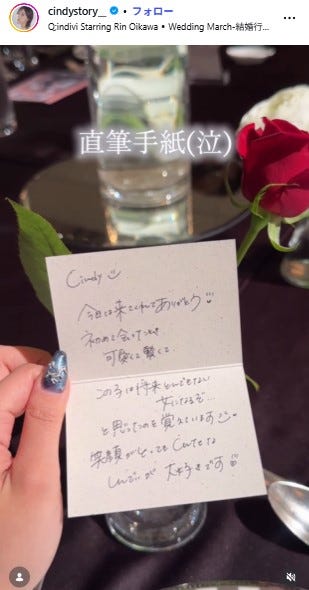 cindystory__ • フォロー
Q;indivi Starring Rin Oikawa • Wedding March-結婚行...
直筆手紙(泣)
Cindy
今日は来てくれてありがとう
初めて会ったとき
可愛くて賢くて
この子は将来とんでもない
女になるぞ...
と思ったのを覚えています
笑顔がとってもCuteな
しんでぃが 大好きです